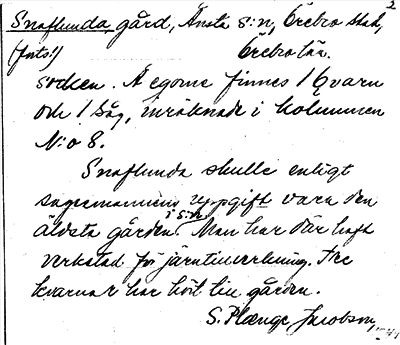 2
Snaflunda gård, Ånsta s:n, Örebro stad,
(forts:) Örebro län.
socken. Å egorna finnes 1 Qvarn
och 1 Såg, inräknade i kolumnen
N:o 8.
Snaflunda skulle enligt
sagesmannens uppgift vara den
äldsta gården i s:n. Man har där haft
verkstad för järntillverkning. Tre
kvarnar har hört till gården.
S. Plænge Jacobson,